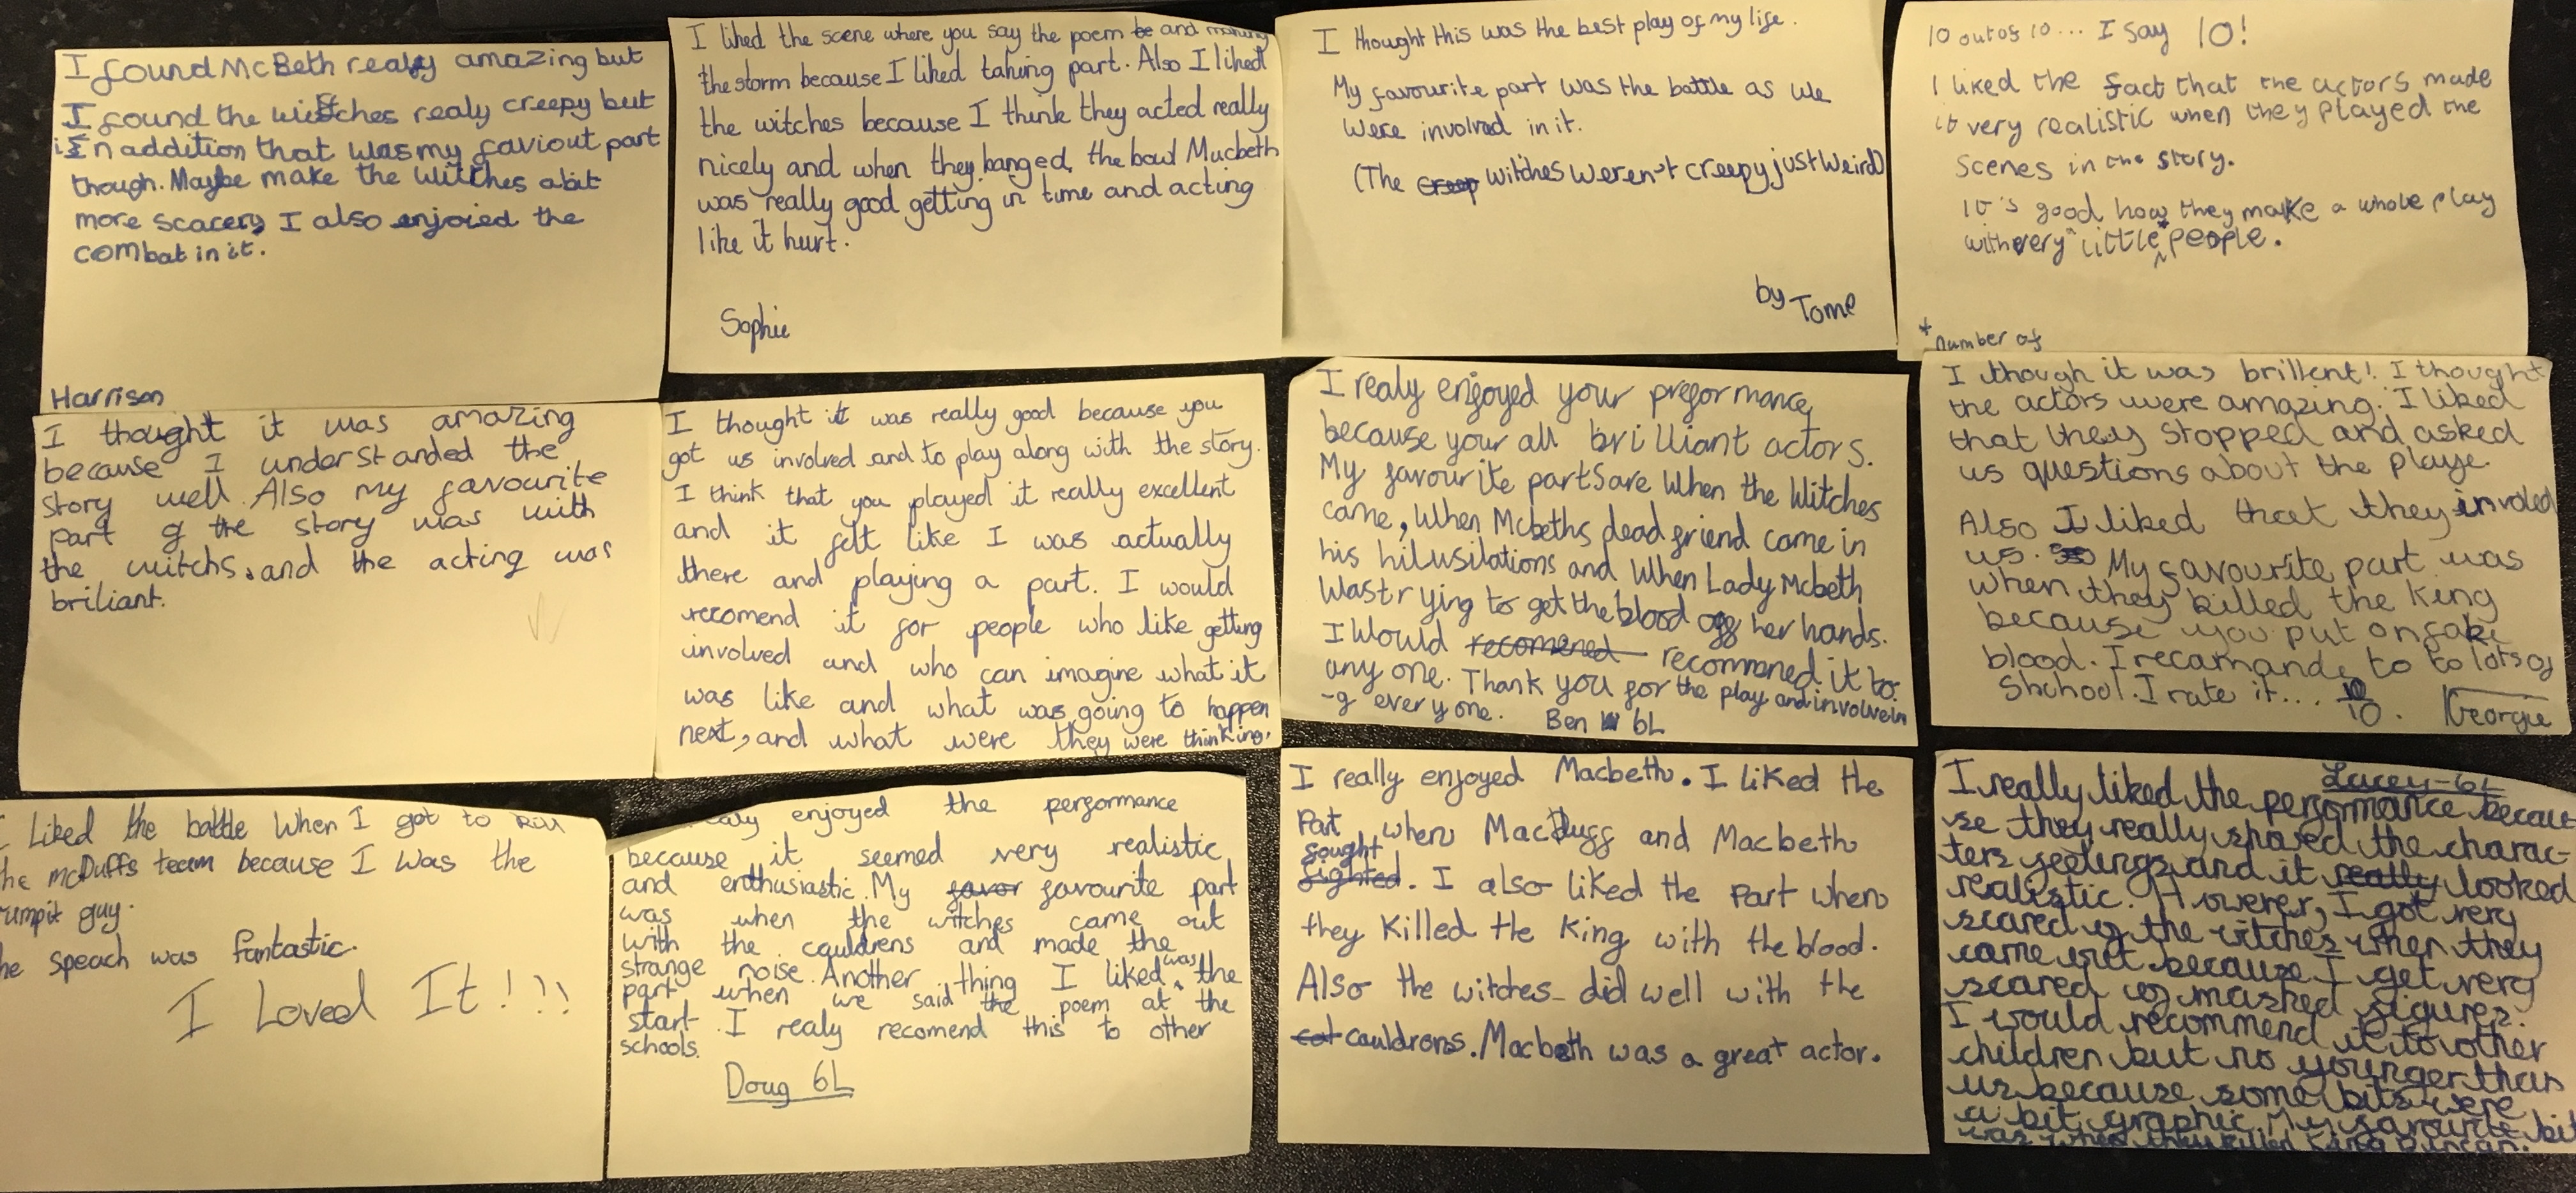 I found McBeth realy amazing but
I found the witches realy creepy but
in addition that was my faviout part
though. Maybe make the witches a bit
more scacery I also enjoied the
combat in it.
Harrison
I liked the scene where you say the poem and making
the storm because I liked taking part. Also I liked
the witches because I think they acted really
nicely and when they banged the bowl Mucbeth
was really good getting in time and acting
like it hurt.
Sophie
I thought this was the best play of my life.
My favourite part was the battle as we
were involved in it.
(The creep witches weren't creepy just weird)
by Tome
10 out of 10... I say 10!
I liked the fact that the actors made
it very realistic when they played the
scenes in the story.
It's good how they make a whole play
with very little * people.
* number of
I thought it was amazing
because I understanded the
story well. Also my favourite
part of the story was with
the witchs. and the acting was
briliant.
I thought it was really good because you
got us involved and to play along with the story.
I think that you played it really excellent
and it felt like I was actually
there and playing a part. I would
recomend it for people who like getting
involved and who can imagine what it
was like and what was going to happen
next, and what were they were thinking.
I realy enjoyed your preformance,
because your all brilliant actors.
My favourite parts are when the witches
came, when Mcbeths dead friend came in
his hilusilations and when Lady Mcbeth
was trying to get the blood off her hands.
I would recomened recommened it to
any one. Thank you for the play and involvein
-g every one. Ben W 6L
I though it was brillent! I thought
the actors were amazing. I liked
that they stopped and asked
us questions about the playe.
Also I liked that they involed
us. So My favourite part was
when they killed the King
because you put on fake
blood. I recamande to to lots of
Shchool. I rate it... 10/10. Georgie
I Liked the battle when I got to kill
the mcDuffs team because I was the
guy.
The speach was fantastic.
I Loved It!!!
enjoyed the performance
because it seemed very realistic
and enthusiastic. My favor favourite part
was when the witches came out
with the cauldrens and made the
strange noise. Another thing I liked was the
part when we said the poem at the
start. I realy recomend this to other
schools.
Doug 6L
I really enjoyed Macbeth. I liked the
Part when MacDuff and Macbeth
fought
fighted. I also liked the Part when
they Killed the King with the blood.
Also the witches did well with the
cat cauldrons. Macbeth was a great actor.
Lacey-6L
I really liked the performance becau-
se they really showed the charac-
ters feelings and it really looked
realistic. However, I got very
scared of the witches when they
came out because I get very
scared of masked figures.
I would recommend it to other
children but no younger than
us because some bits were
a bit graphic. My favourite bit
was when they killed King Duncan.